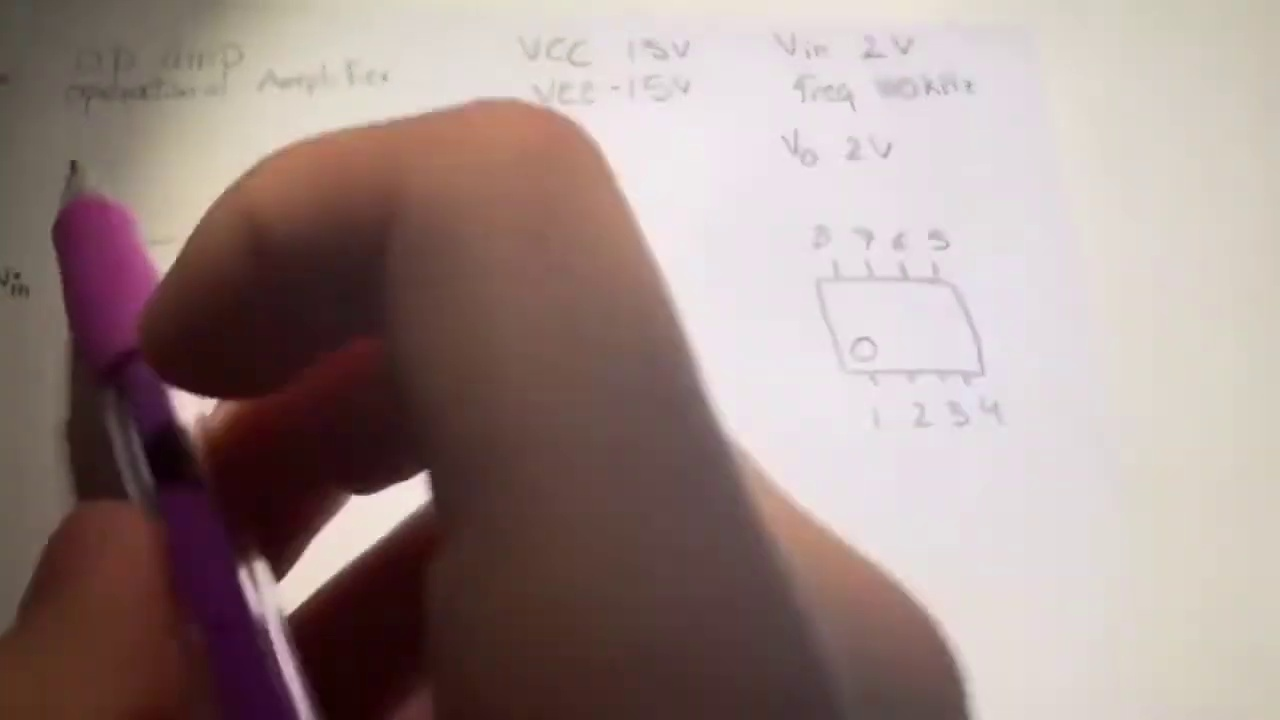 op amp
operational Amplifier
VCC 15V
VEE -15V
Vin 2V
freq 110kHz
Vo 2V
Vin
8 7 6 5
1 2 3 4